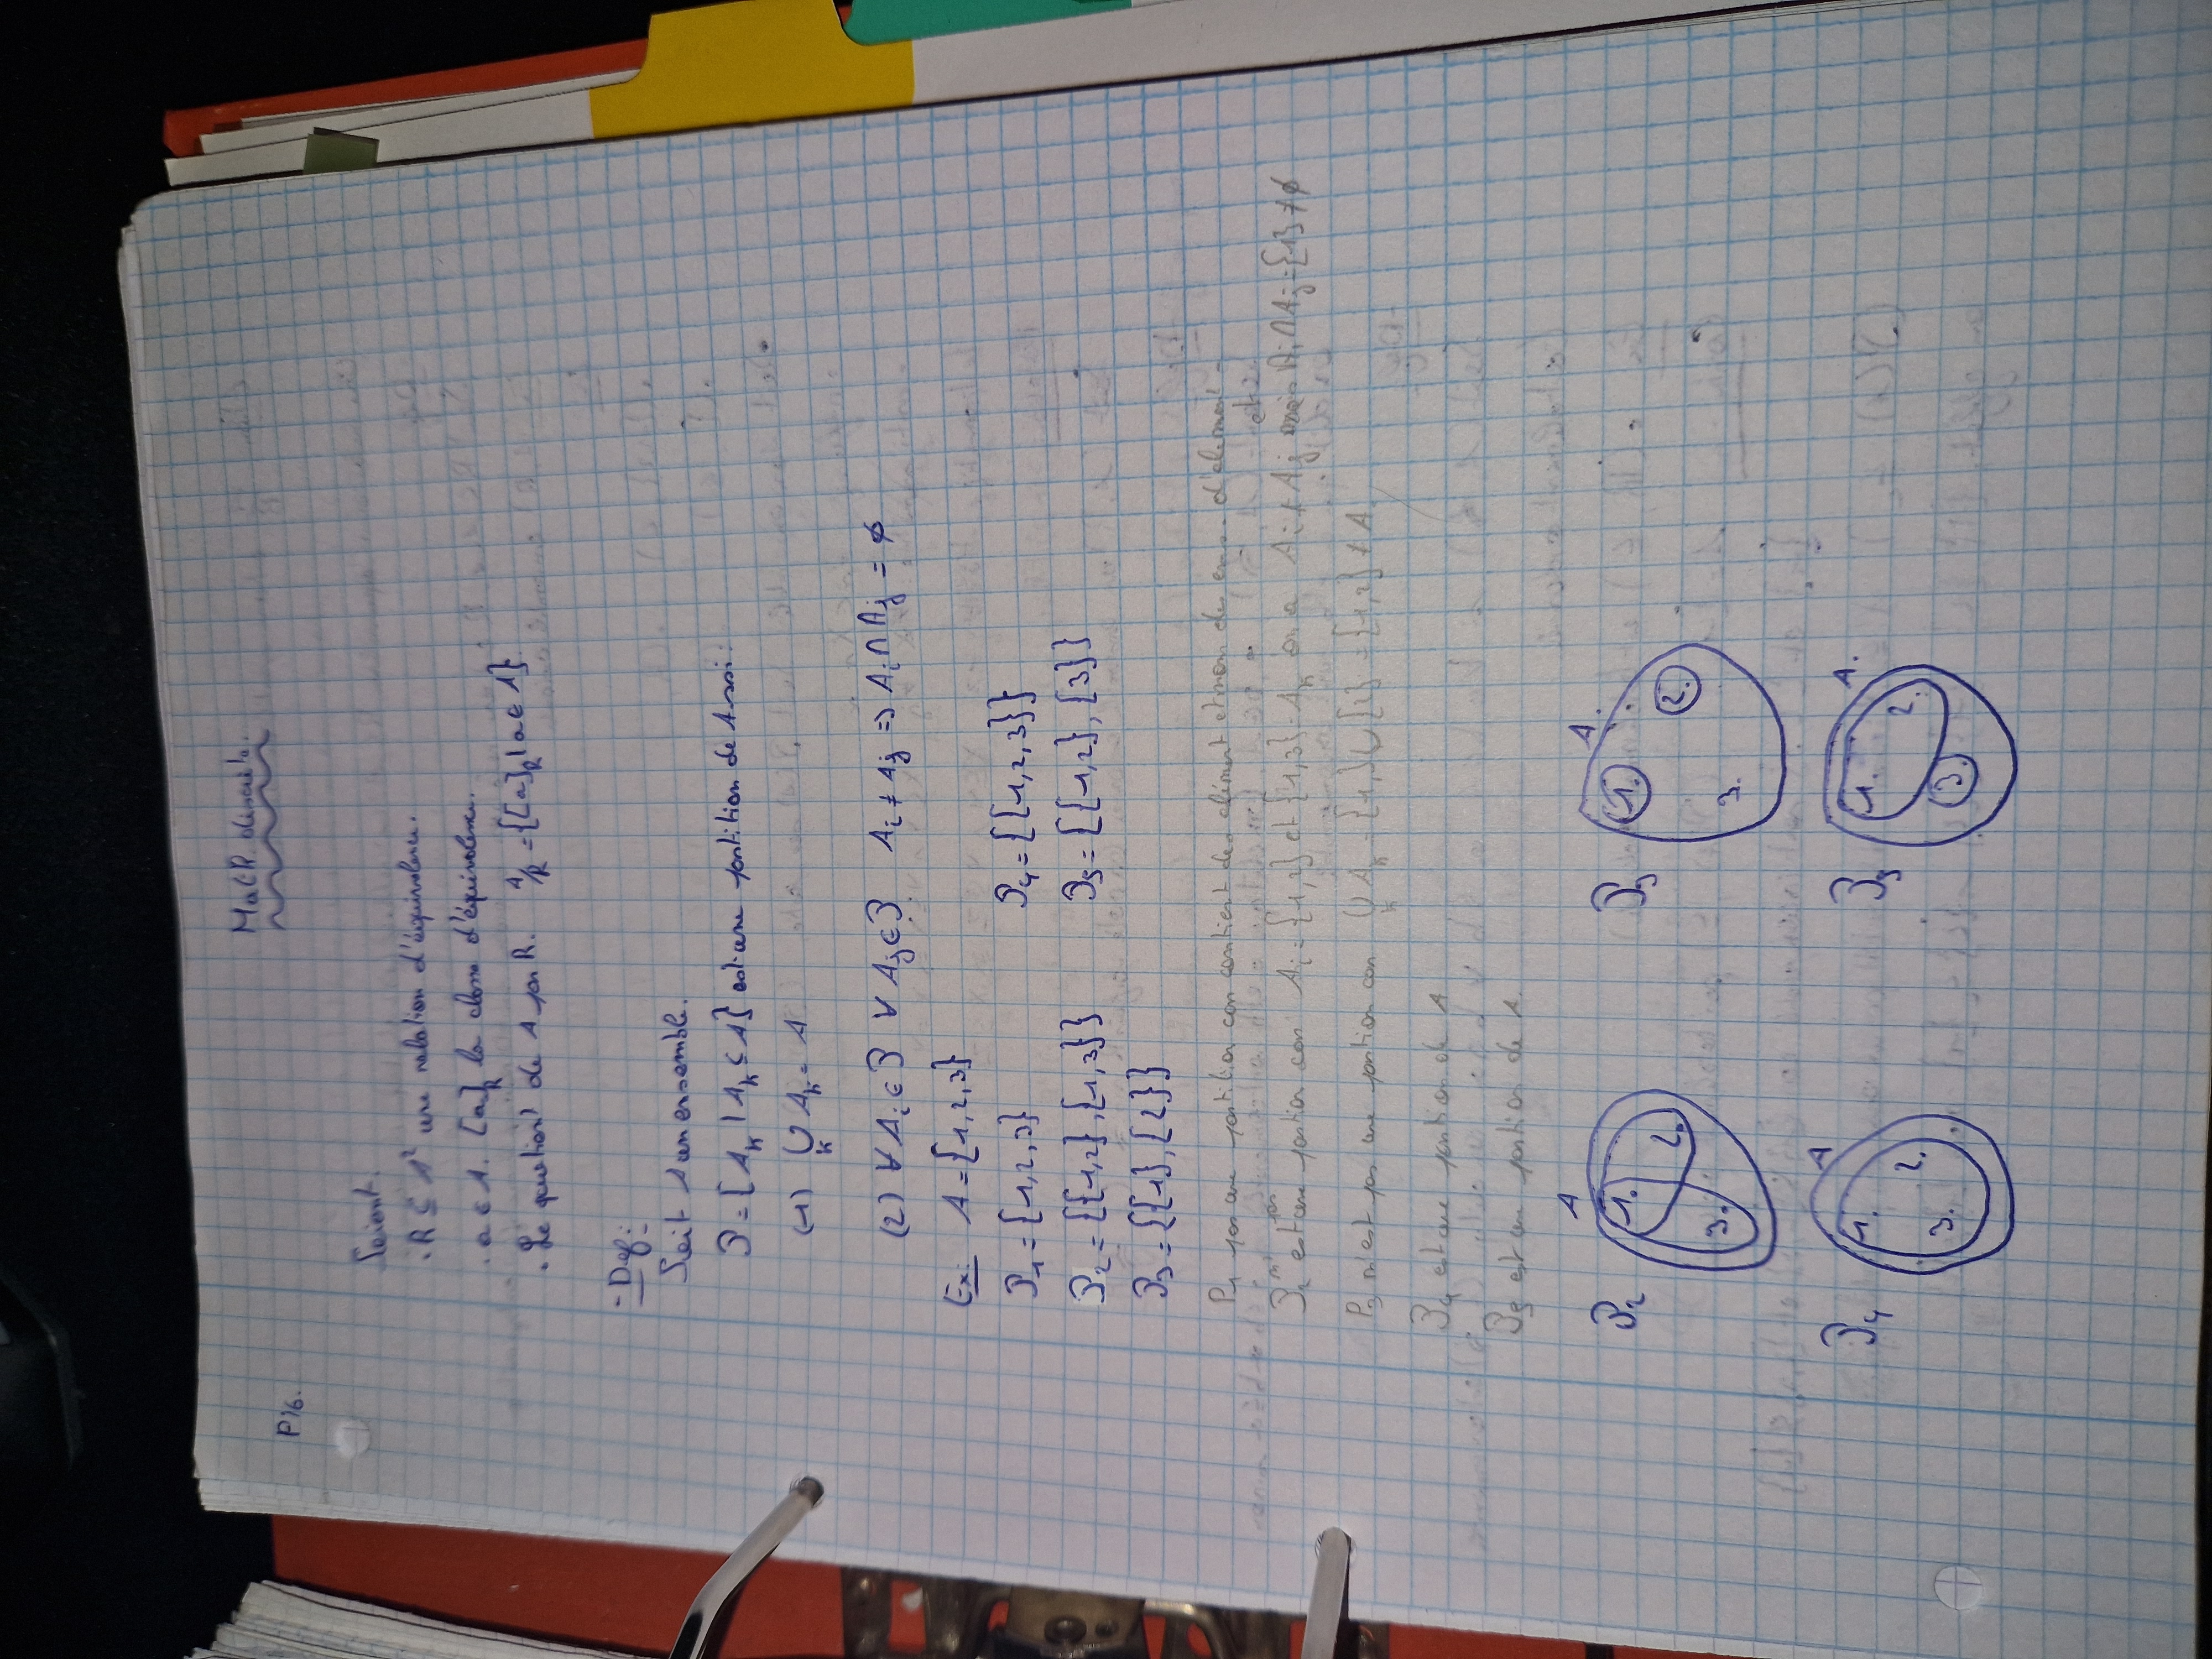 Math discrète.
P16.
Soient.
. R ⊆ A² une relation d'équivalence.
. a ∈ A. [a]R la classe d'équivalence.
. Le quotient de A par R. A/R = {[a]R | a ∈ A}
- Def:
Soit A un ensemble.
P = { Ak | Ak ⊆ A} est une partition de A ssi:
(1) ∪k Ak = A
(2) ∀ Ai ∈ P ∀ Aj ∈ P. Ai ≠ Aj => Ai ∩ Aj = ∅
Ex: A = {1,2,3}
P1 = {1,2,3} P4 = {{1,2,3}}
P2 = {{1,2},{1,3}} P5 = {{1,2},{3}}
P3 = {{1},{2}}
P1 pas une partition car contient des élément et non des ens. d'element
P2 n'est pas une partion car Ai = {1,2} et {1,3} = Ak on a Ai ≠ Aj et mais Ai ∩ Aj = {1} ≠ ∅
P3 n'est pas une partion car ∪k Ak = {1} ∪ {2} = {1,2} ≠ A.
P4 est une partion de A
P5 est une partion de A.
P2 A 1. 2. 3.
P3 A. 1. 2. 3.
P4 A 1. 2. 3.
P5 A. 1. 2. 3.